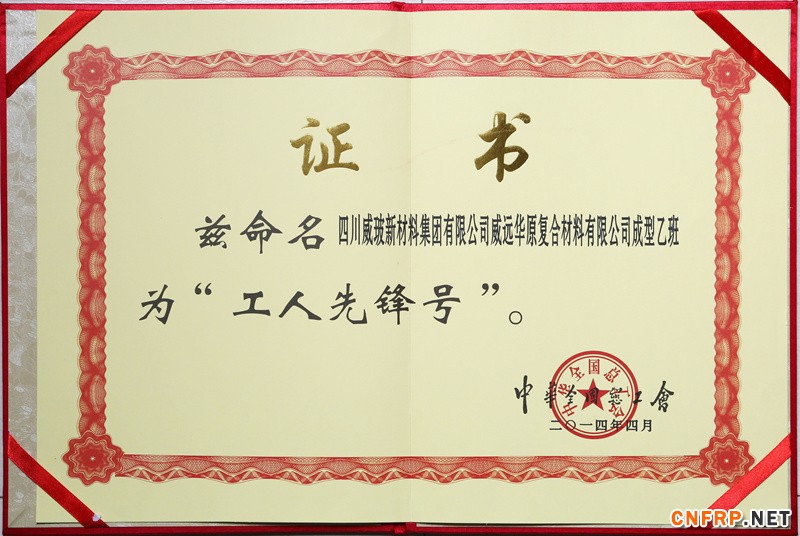 证 书
兹命名 四川威玻新材料集团有限公司威远华原复合材料有限公司成型乙班
为“工人先锋号”。
中華全國總工會
中华全国总工会
二〇一四年四月
CNFRP.NET